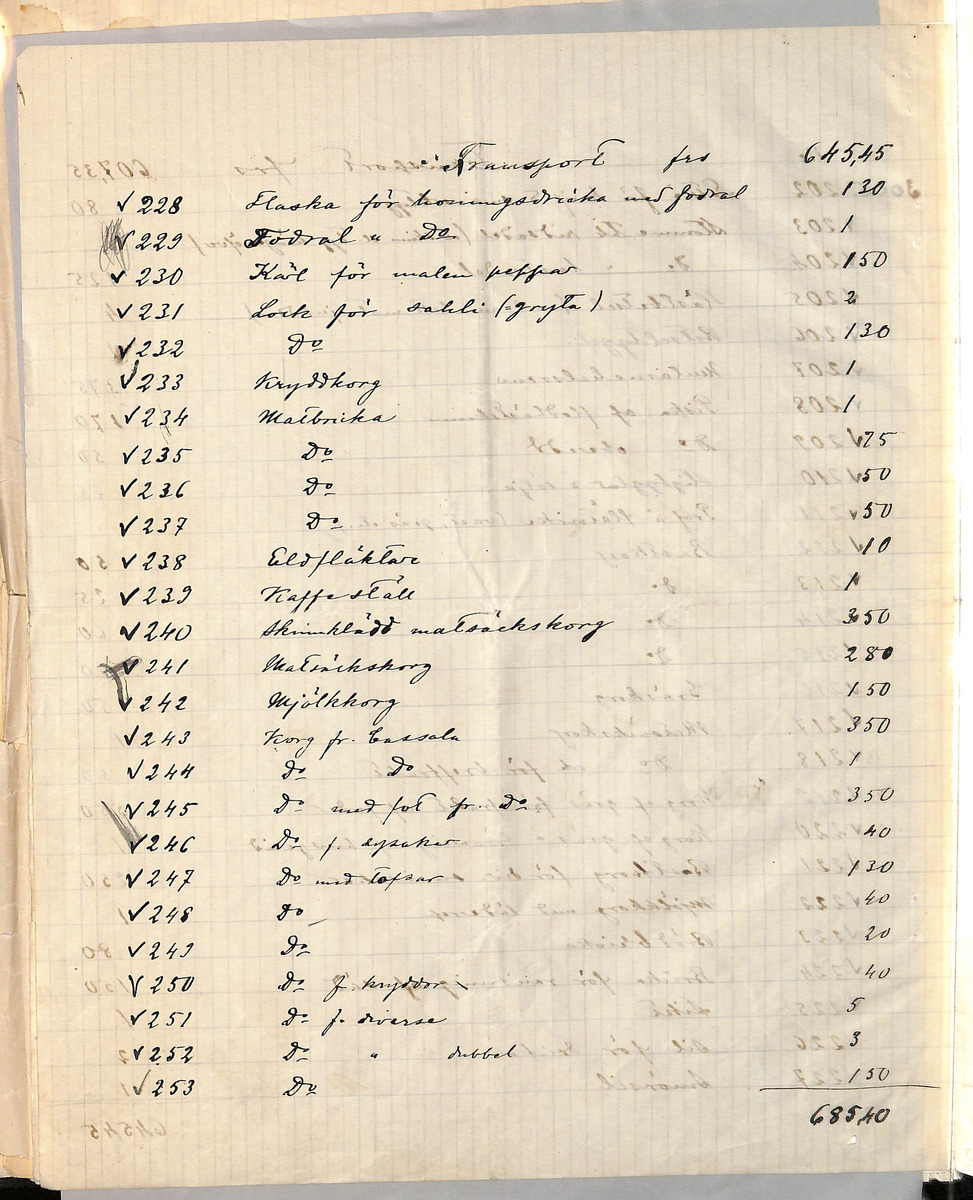 Transport frs 645,45
√ 228 Flaska för honingsdricka med fodral 1 30
√ 229 Fodral " Do 1
√ 230 Kärl för malen peppar 1 50
√ 231 Lock för sahli (=gryta) 2
√ 232 Do 1 30
√ 233 Kryddkorg 1
√ 234 Matbricka 1
√ 235 Do 75
√ 236 Do 50
√ 237 Do 50
√ 238 Eldfläktare 10
√ 239 Kaffeställ 1
√ 240 Skinnklädd matsäckskorg 3 50
√ 241 Matsäckskorg 2 80
√ 242 Mjölkkorg 1 50
√ 243 Korg fr. Cassala 3 50
√ 244 Do Do 1
√ 245 Do med fot fr. Do 3 50
√ 246 Do f. sysaker 40
√ 247 Do med tofsar 1 30
√ 248 Do 40
√ 249 Do 20
√ 250 Do f. kryddor 40
√ 251 Do f. diverse 5
√ 252 Do " dubbel 3
√ 253 Do 1 50
685,40